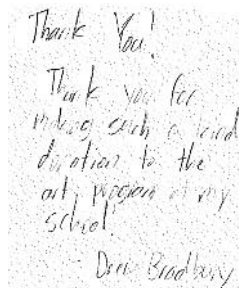 Thank You!
Thank you for
making such a kind
donation to the
arts program at my
school!
Drew Bradbury